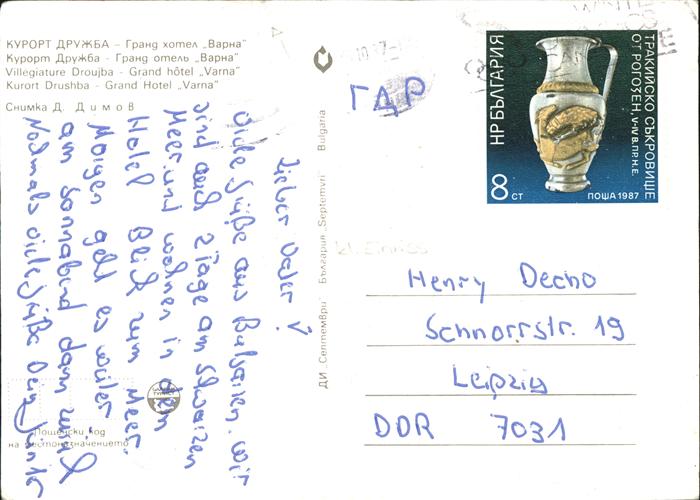 КУРОРТ ДРУЖБА – Гранд хотел „Варна"
Курорт Дружба - Гранд отель „Варна"
Villégiature Droujba - Grand hôtel „Varna"
Kurort Drushba - Grand Hotel „Varna"
Снимка Д. Димов
Lieber Vater!
Viele Grüße aus Bulgarien. Wir
sind auch 2 Tage am Schwarzen
Meer und wohnen in dem
Hotel Blick zum Meer.
Morgen geht es weiter
am Sonnabend dann zurück
Nochmals viele Grüße Dein
ДИ „Септември" България „Septemvri" Bulgaria
Пощенски код
на местоназначението
ГДР
НР БЪЛГАРИЯ
ТРАКИЙСКО СЪКРОВИЩЕ
ОТ РОГОЗЕН, V-IV В.ПР.Н.Е.
8 СТ
ПОЩА 1987
kl. Einriss
Henry Decho
Schnorrstr. 19
Leipzig
DDR 7031